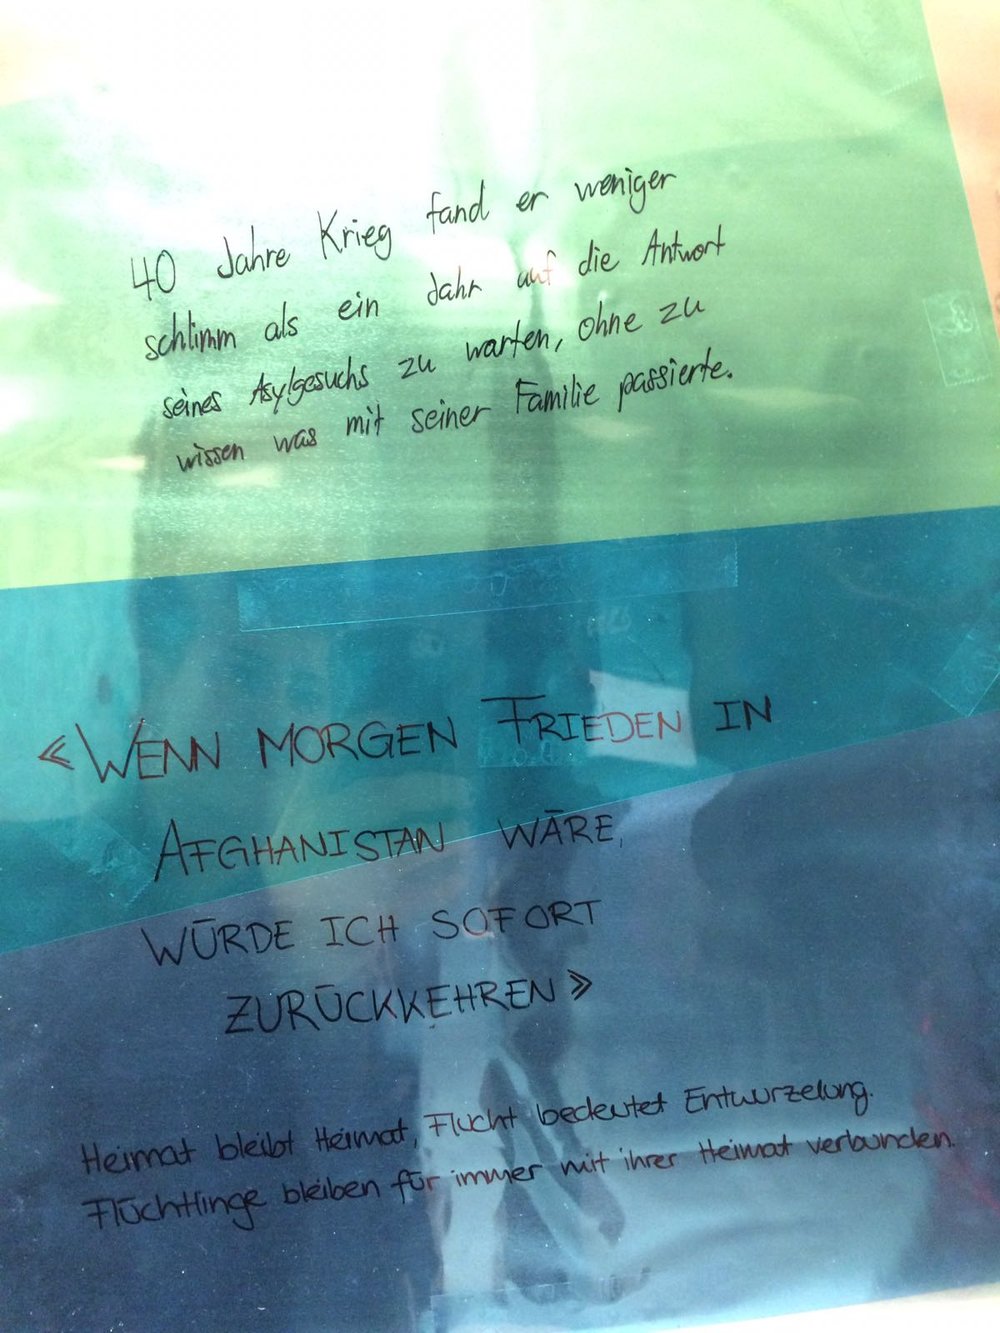 40 Jahre Krieg fand er weniger
schlimm als ein Jahr auf die Antwort
seines Asylgesuchs zu warten, ohne zu
wissen was mit seiner Familie passierte.
«WENN MORGEN FRIEDEN IN
AFGHANISTAN WÄRE,
WÜRDE ICH SOFORT
ZURÜCKKEHREN»
Heimat bleibt Heimat, Flucht bedeutet Entwurzelung.
Flüchtlinge bleiben für immer mit ihrer Heimat verbunden.